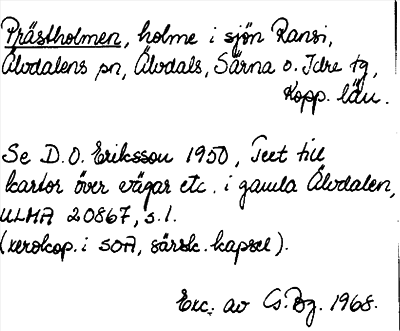 Prästholmen, holme i sjön Ransi,
Älvdalens sn, Älvdals, Särna o. Idre tg,
Kopp. län.
Se D.O. Eriksson 1950, Text till
kartor över vägar etc. i gamla Älvdalen,
ULMA 20867, s. 1.
(xerokop. i SOA, särsk. kapsel).
Exc. av Cs. Bg. 1968.